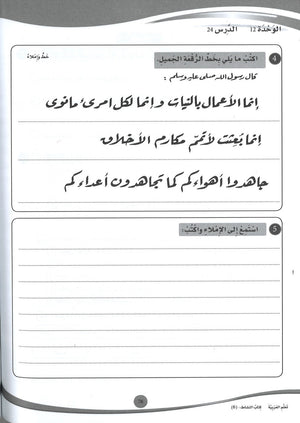 الوَحْدَة 12 الدَّرس 24
خَطّ وَإِمْلاء
4 اكْتُبْ ما يَلي بِخَطِّ الرُّقْعَةِ الجَميلِ.
قال رسول الله صلى الله عليه وسلم :
إنما الأعمال بالنيات وإنما لكل امرئ ما نوى
إنما بُعثت لأتمّم مكارم الأخلاق
جاهدوا أهواءكم كما تجاهدون أعداءكم
5 اسْتَمِعْ إِلى الإِمْلاءِ واكْتُبْ: